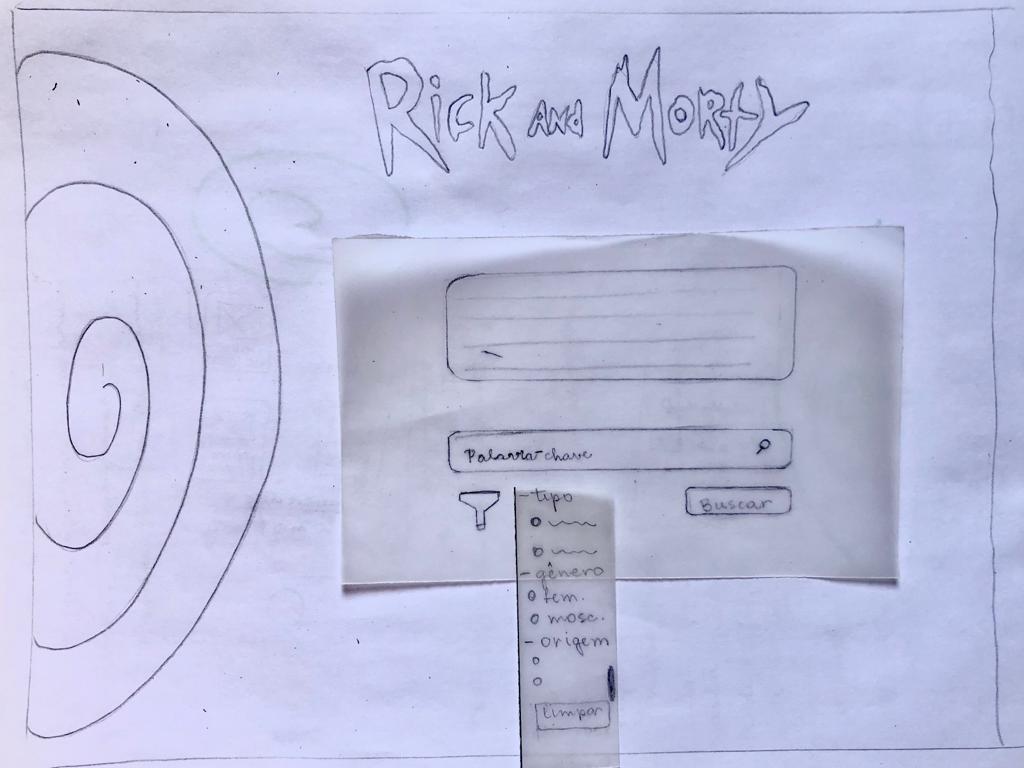 Rick and Morty
Palavra-chave
Buscar
- tipo
- gênero
fem.
masc.
- origem
Limpar